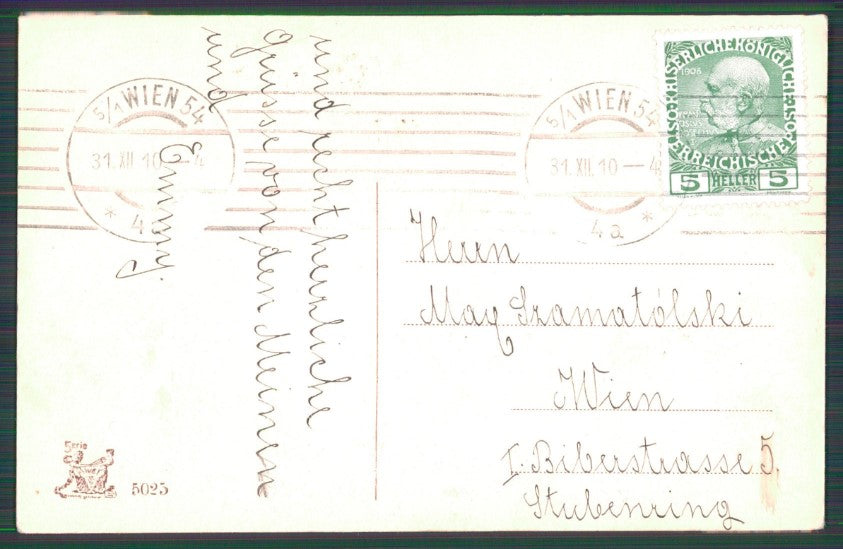 und recht herzliche
grüsse von den Meinen
und
Emmy.
5/1 WIEN 54
31.XII.10—4
* 4
5/1 WIEN 54
31.XII.10—4
4a *
KAISERLICHE KÖNIGLICHE ÖSTERREICHISCHE
1908
5 HELLER 5
Herrn
Max Szamatólski
Wien
I. Biberstrasse 5.
Stubenring
Serie
5025